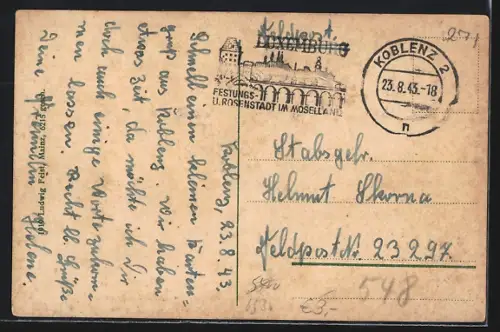 Feldpost.
LUXEMBURG
FESTUNGS-
U. ROSENSTADT IM MOSELLAND
KOBLENZ 2
23.8.43.-18
n
271
Koblenz, 23.8.43.
Schnell einen kleinen Karten-
gruß aus Koblenz. Wir haben
etwas Zeit, da möchte ich Dir
doch auch einige Worte zukom-
men lassen. Recht lb. Grüße
Deine
Helene.
Stabsgefr.
Helmut Skorna
Feldpostnr. 23297.
548
€3,-
Ludwig Feist, Mainz